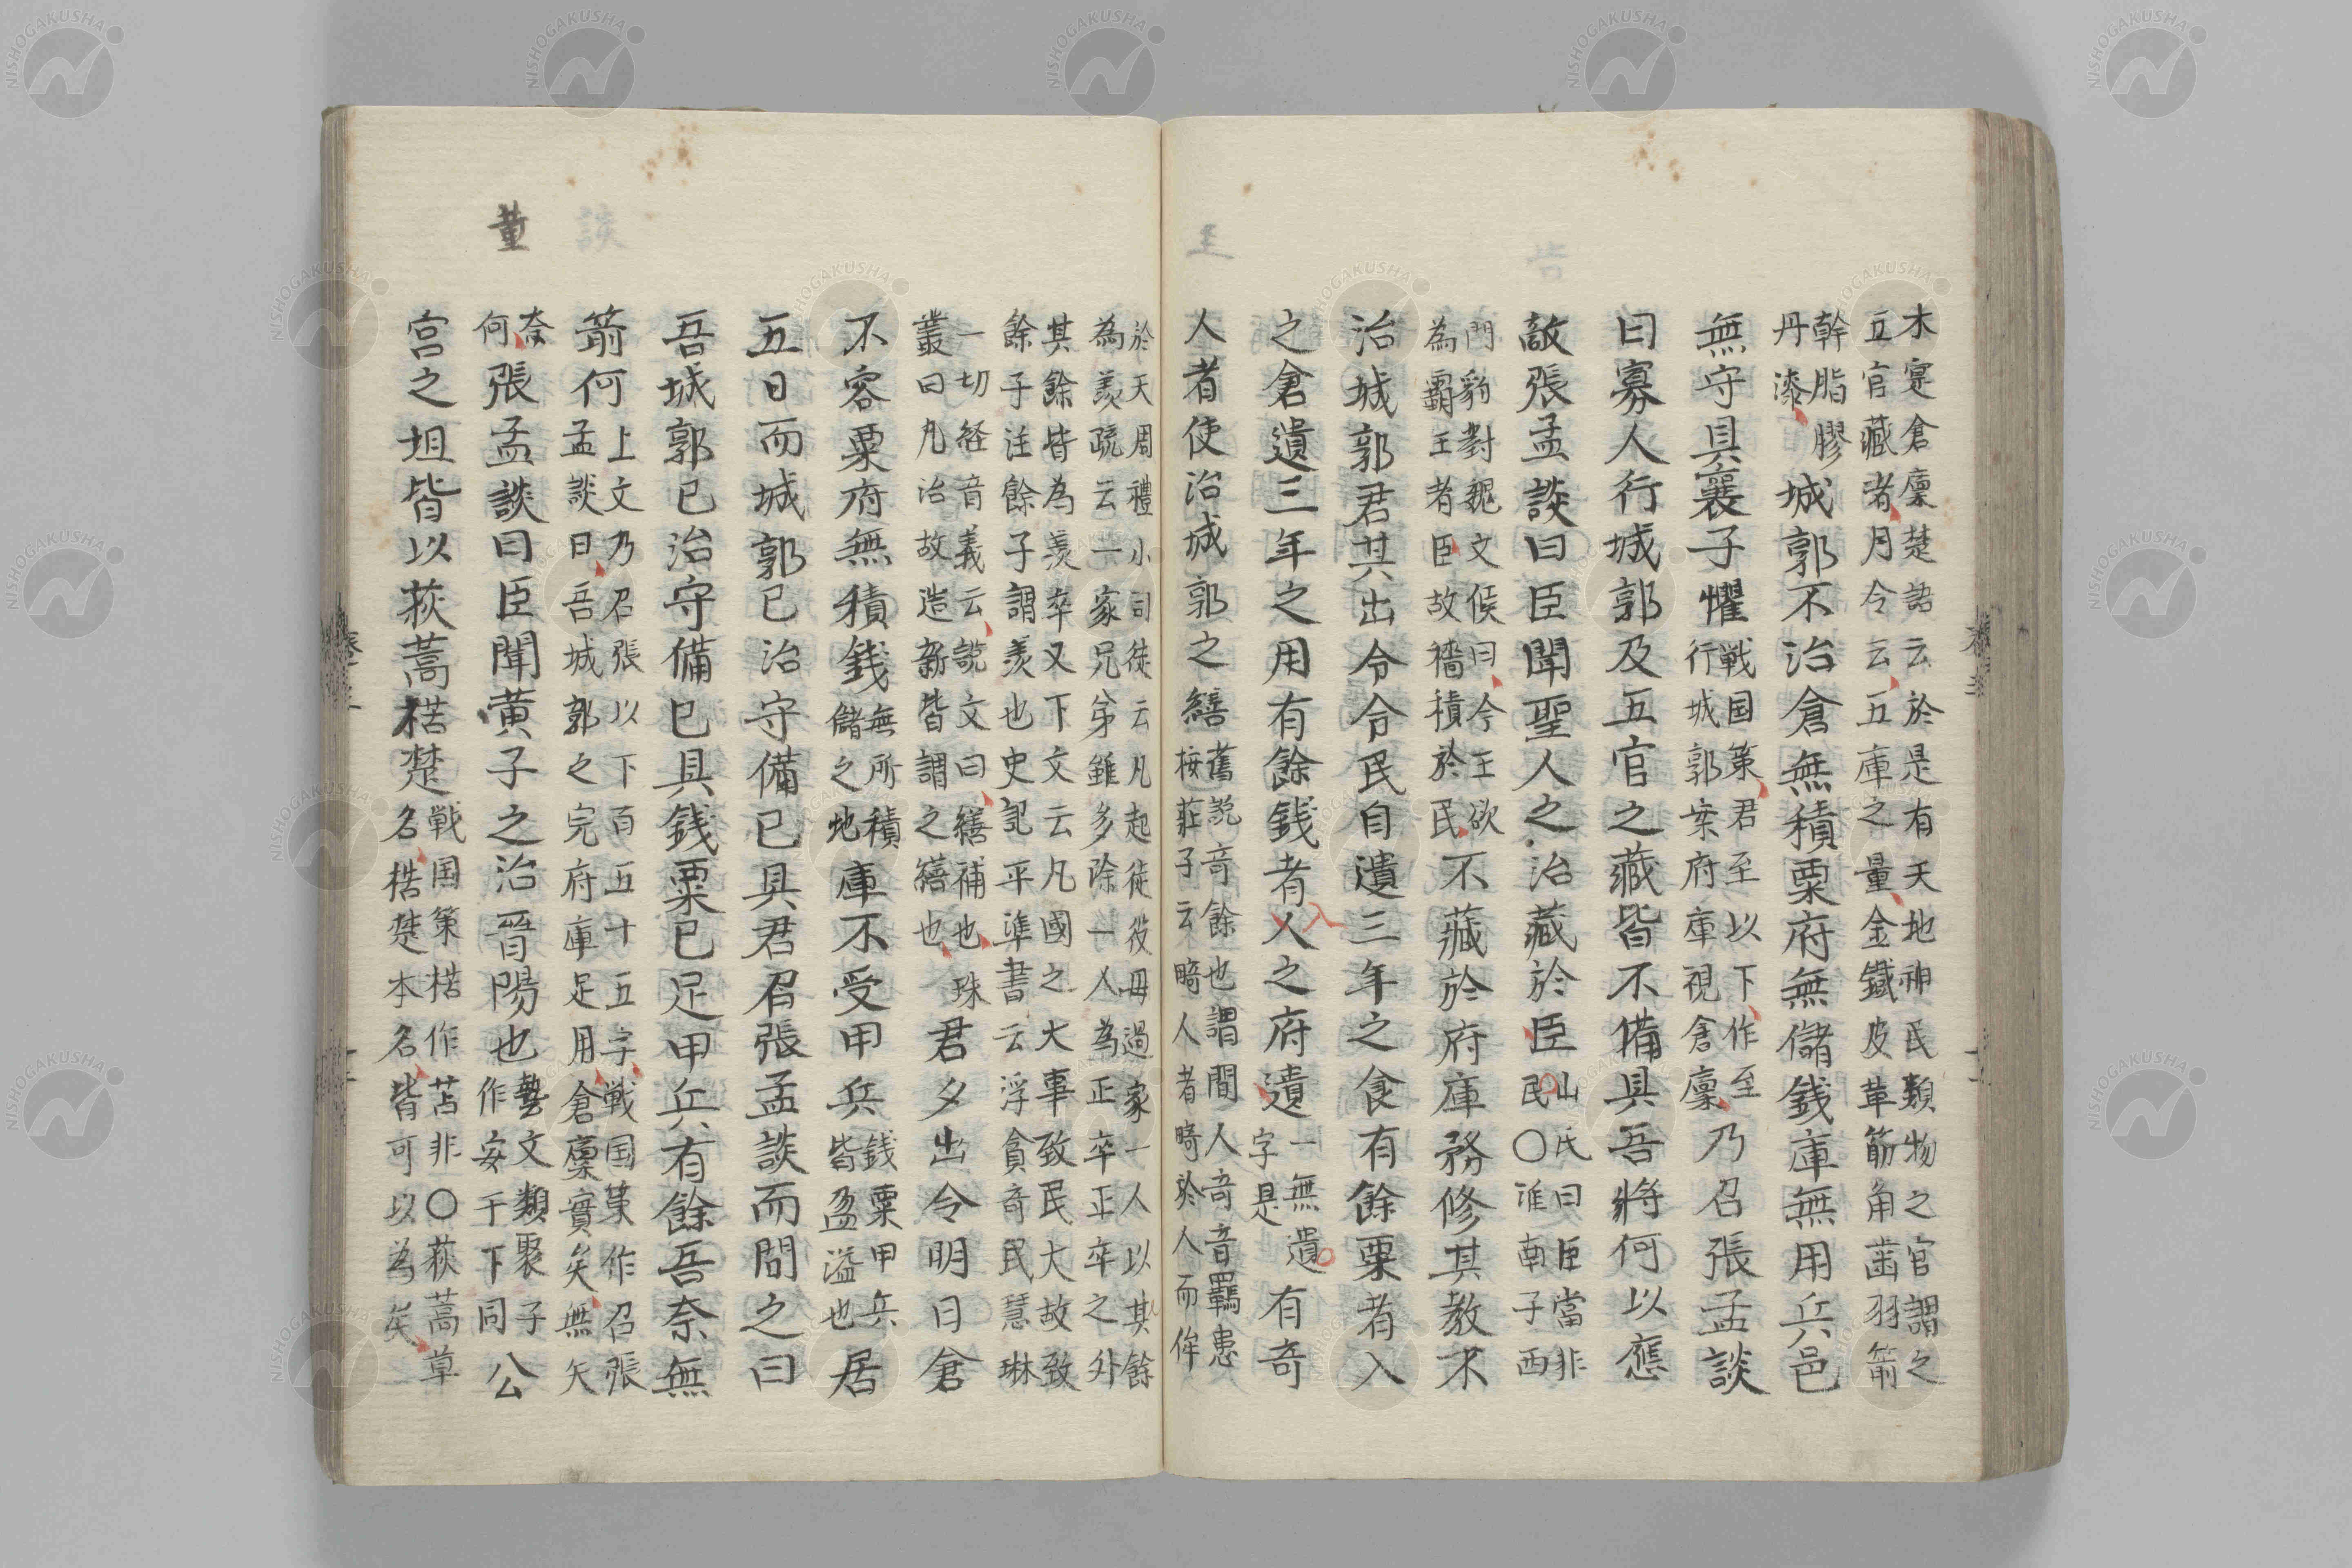 木寔倉廩楚語云於是有天地神民類物之官謂之
五官藏者月令云五庫之量金鐵皮革筋角齒羽箭
幹脂膠
丹漆
城郭不治倉無積粟府無儲錢庫無用兵邑
無守具襄子懼
戦国策君至以下作至
行城郭案府庫視倉廩
乃召張孟談
曰寡人行城郭及五官之藏皆不備具吾將何以應
敵張孟談曰臣聞聖人之治藏於臣
山氏曰臣當非
民〇淮南子西
門豹對魏文侯曰今王欲
為霸王者臣故穡積於民
不藏於府庫務修其教不
治城郭君其出令令民自遺三年之食有餘粟者入
之倉遺三年之用有餘錢者人之府遺
一無遺
字是
有奇
人者使治城郭之繕
舊說奇餘也謂閒人奇音羈患
按莊子云畸人者畸於人而侔
於天周禮小司徒云凡起徒役毋過家一人以其餘
為羨疏云一家兄弟雖多除一人為正卒正卒之外
其餘皆為羨卒又下文云凡國之大事致民大故致
餘子注餘子謂羨也史記平準書云浮食奇民慧琳
一切経音義云說文曰繕補也珠
叢曰凡治故造新皆謂之繕也
君夕出令明日倉
不容粟府無積錢
無所積
儲之地
庫不受甲兵
錢粟甲兵
皆盈溢也
居
五日而城郭已治守備已具君召張孟談而問之曰
吾城郭已治守備已具錢粟已足甲兵有餘吾奈無
箭何
上文乃召張以下百五十五字戦国策作召張
孟談曰吾城郭之完府庫足用倉廩實矣無矢
奈
何
張孟談曰臣聞黄子之治晉陽也
藝文類聚子
作安于下同
公
宮之垣皆以荻蒿楛楚
戦国策楛作苫非〇荻蒿草
名楛楚本名皆可以為矢
告
主
談
董
NISHOGAKUSHA